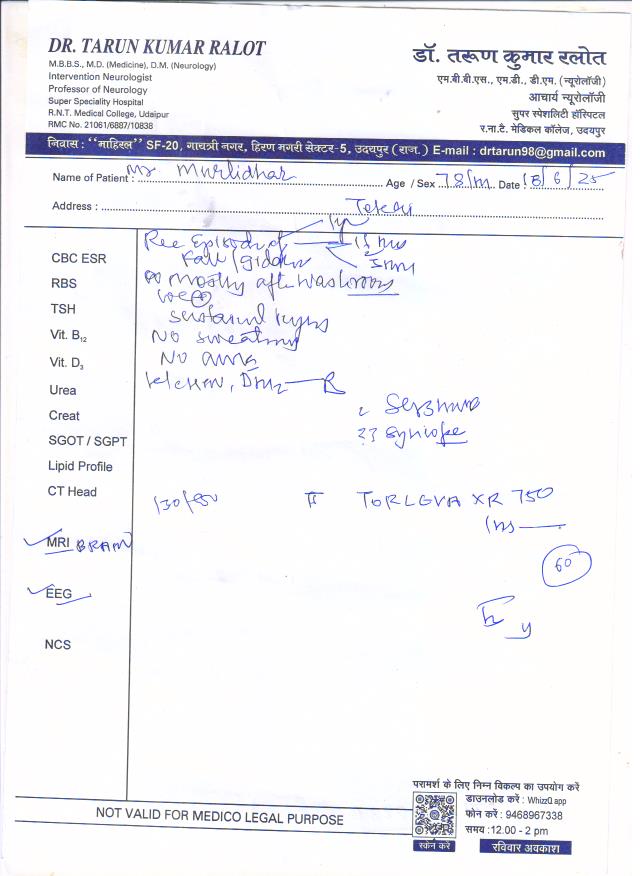 DR. TARUN KUMAR RALOT
M.B.B.S., M.D. (Medicine), D.M. (Neurology)
Intervention Neurologist
Professor of Neurology
Super Speciality Hospital
R.N.T. Medical College, Udaipur
RMC No. 21061/6887/10838
डॉ. तरूण कुमार रलोत
एम.बी.बी.एस., एम.डी., डी.एम. (न्यूरोलॉजी)
आचार्य न्यूरोलॉजी
सुपर स्पेशलिटी हॉस्पिटल
र.ना.टे. मेडिकल कॉलेज, उदयपुर
निवास : "माहिरल" SF-20, गायत्री नगर, हिरण मगरी सेक्टर-5, उदयपुर (राज.) E-mail : drtarun98@gmail.com
Name of Patient : Mr Murlidhar Age / Sex 78/m Date : 18/6/25
Address :
Episode of
Fall / giddiness
CBC ESR
RBS
mostly after washroom
LOC +
TSH
Vit. B12
No sweating
Vit. D3
No
Urea
Creat
Seizure
?? Syncope
SGOT / SGPT
Lipid Profile
CT Head
130/80
TORLEVA XR 750
MRI BRAIN
60
EEG
NCS
परामर्श के लिए निम्न विकल्प का उपयोग करें
डाउनलोड करें : WhizzQ app
फोन करें : 9468967338
समय : 12.00 - 2 pm
स्कैन करें
रविवार अवकाश
NOT VALID FOR MEDICO LEGAL PURPOSE